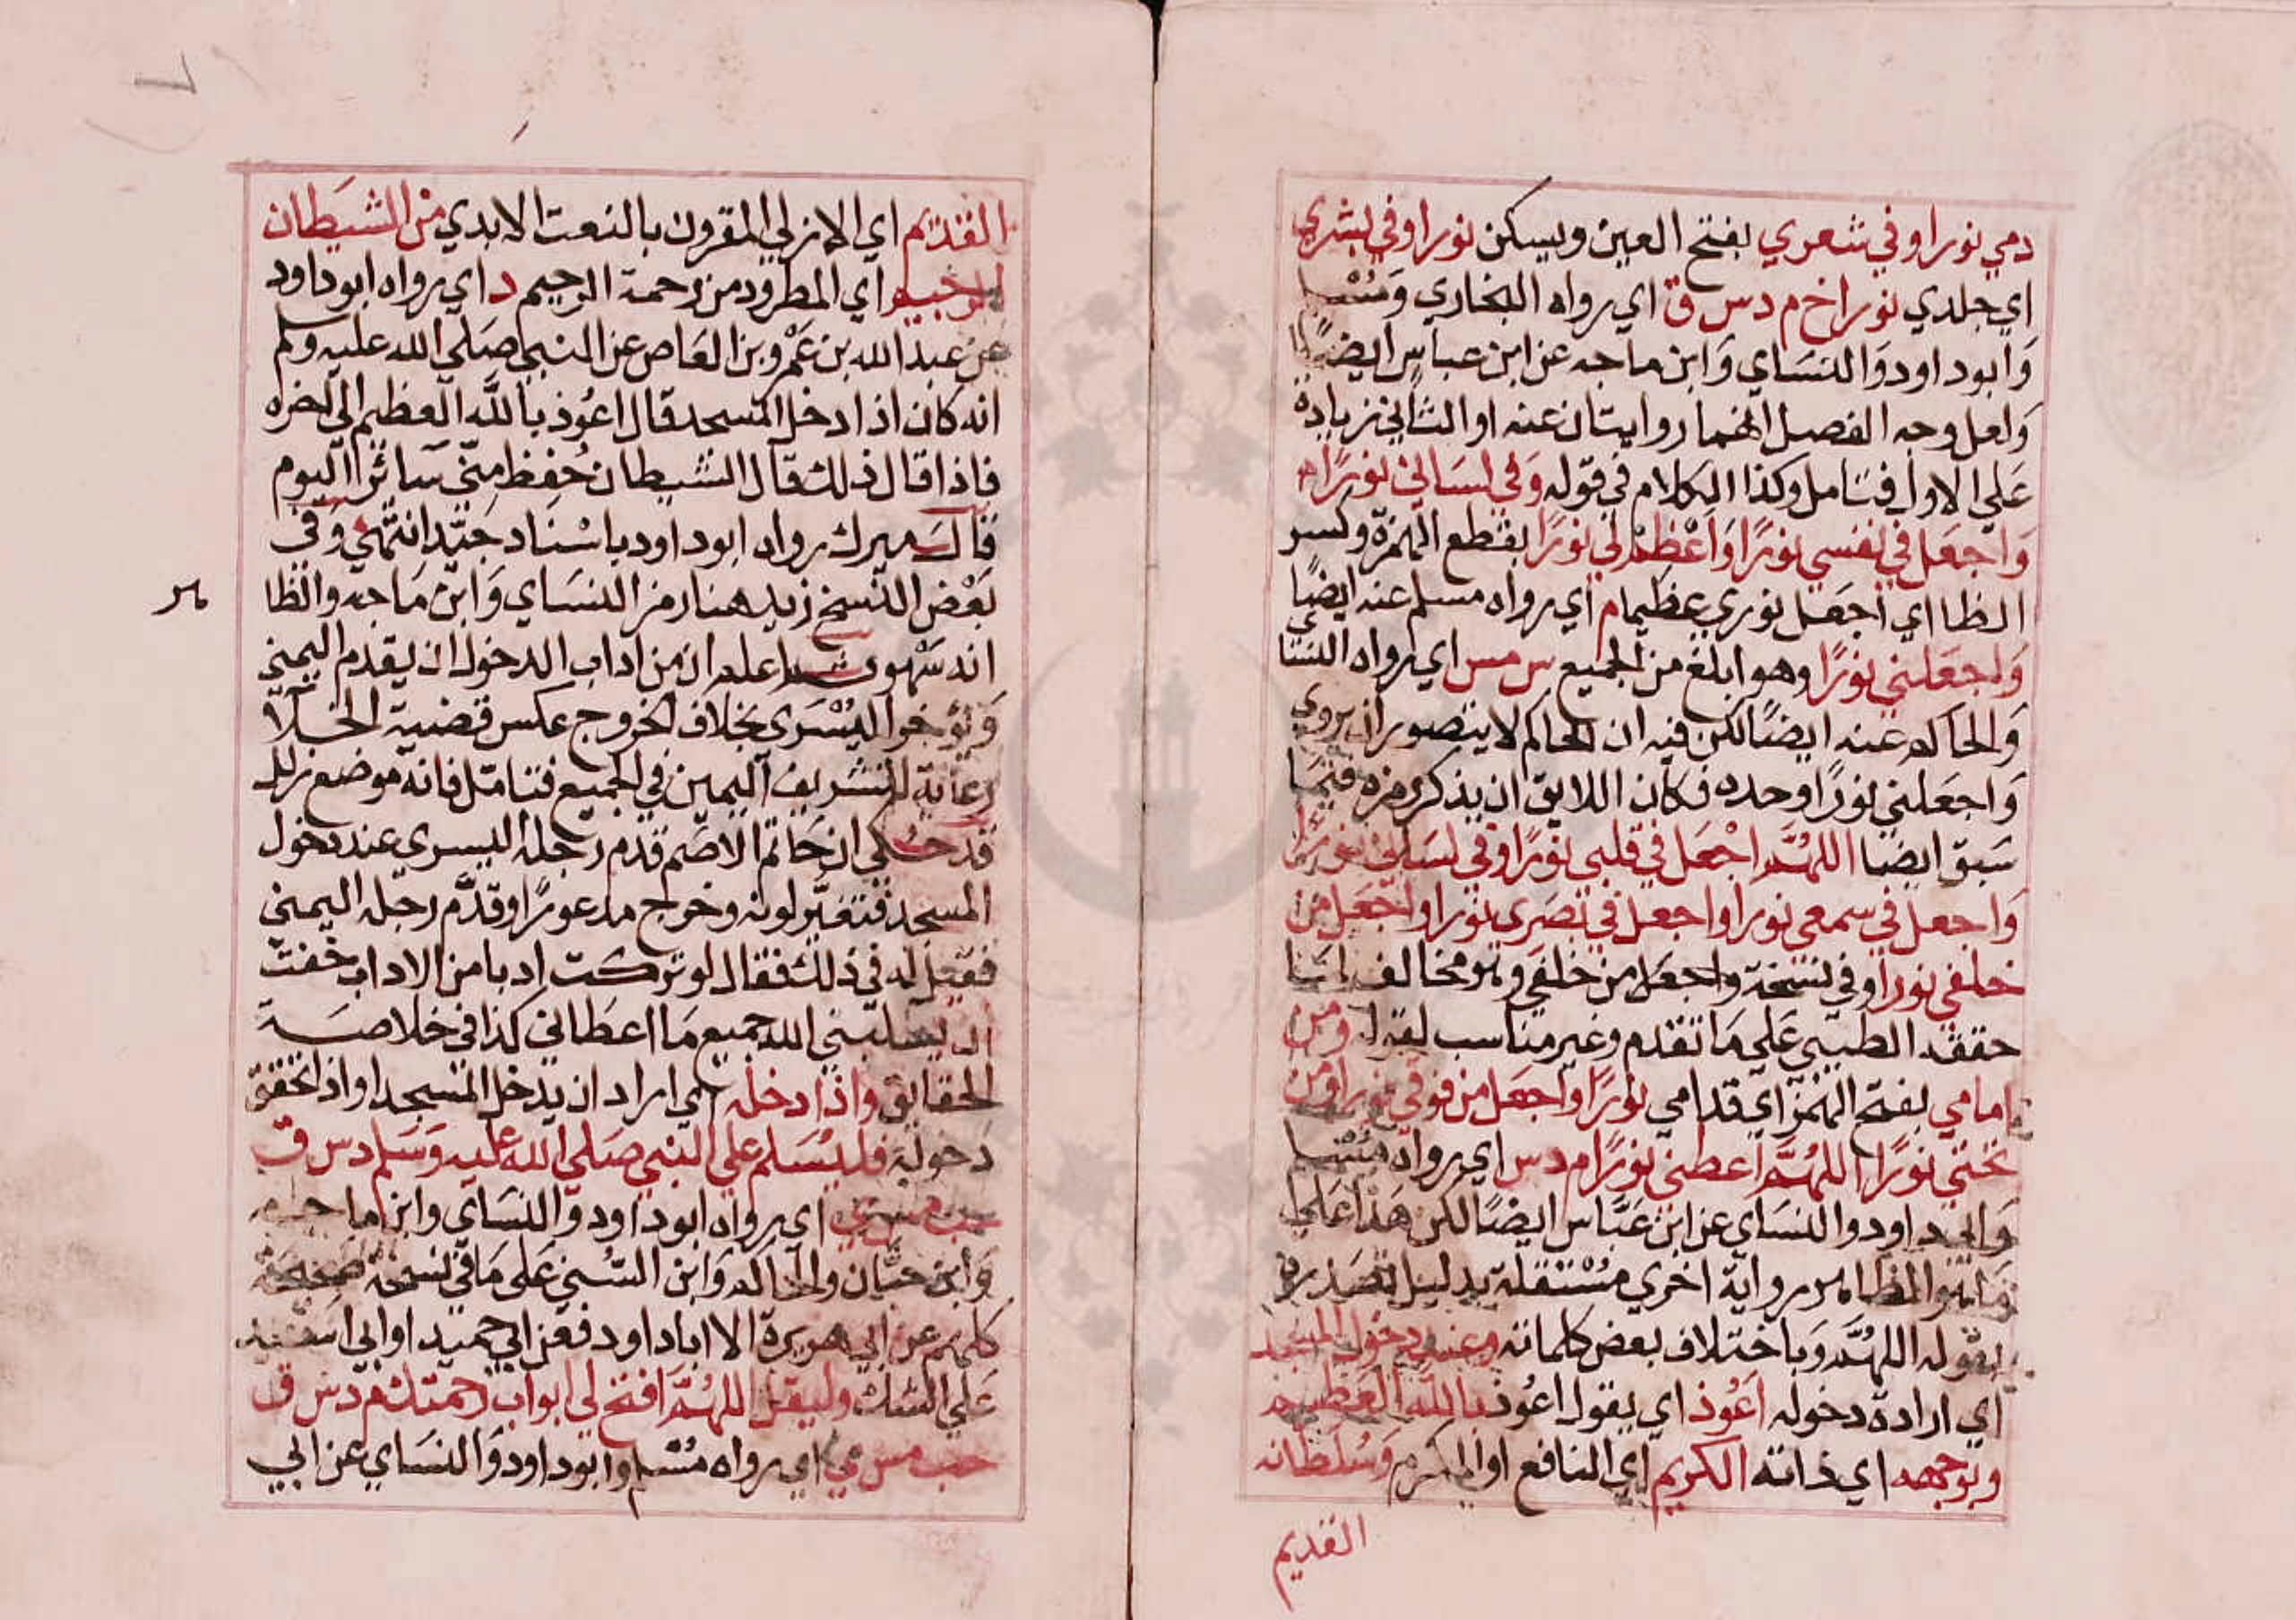 دمي نورا وفي شعري بفتح العين ويسكن نورا وفي بشري
اي جلدي نورا خ م د س ق اي رواه البخاري ومسلم
وابو داود والنساي وابن ماجه عن ابن عباس ايضا
ولعل وجه الفصل انهما روايتان عنه او الثاني زيادة
علي الاول فتامل وكذا الكلام في قوله وفي لساني نورا م
واجعل في نفسي نورا واعظم لي نورا بقطع الهمزة وكسر
الظا اي اجعل نوري عظيما م اي رواه مسلم عنه ايضا
واجعلني نورا وهو ابلغ من الجميع س مس اي رواه النساي
والحاكم عنه ايضا لكن فيه ان الحاكم لا يتصور ان يروي
واجعلني نورا وحده فكان اللايق ان يذكر رمزه فيما
سبق ايضا اللهم اجعل في قلبي نورا وفي لساني نورا
واجعل في سمعي نورا واجعل في بصري نورا واجعل من
خلفي نورا وفي نسخة واجعل من خلفي وهو مخالف لما
حققه الطيبي علي ما تقدم وغير مناسب لقوله ومن
امامي بفتح الهمز اي قدامي نورا واجعل من فوقي نورا ومن
تحتي نورا اللهم اعطني نورا م د س اي رواه مسلم
وابي داود والنساي عن ابن عباس ايضا لكن هذا علي
ما هو الظاهر رواية اخري مستقلة بدليل تصديره
بقوله اللهم وباختلاف بعض كلماته وعند دخول المسجد
اي ارادة دخوله اعوذ اي يقول اعوذ بالله العظيم
وبوجهه اي ذاته الكريم اي النافع او المكرم وسلطانه
القديم
القديم اي الازلي المقرون بالنعت الابدي من الشيطان
الرجيم اي المطرود من رحمة الرحيم د اي رواه ابو داود
عن عبد الله بن عمرو بن العاص عن النبي صلي الله عليه وسلم
انه كان اذا دخل المسجد قال اعوذ بالله العظيم الي اخره
فاذا قال ذلك قال الشيطان حفظ مني سائر اليوم
قال ميرك رواه ابو داود باسناد جيد انتهي وفي
بعض النسخ زيد هنا رمز النساي وابن ماجه والظا
هر
انه سهو ثم اعلم ان من اداب الدخول ان يقدم اليمني
ويؤخر اليسري بخلاف الخروج عكس قضية الخلا
رعاية لتشريف اليمين في الجميع فتامل فانه موضع زلل
قد حكي ان حاتم الاصم قدم رجله اليسري عند دخول
المسجد فتغير لونه وخرج مذعورا وقدم رجله اليمني
فقيل له في ذلك فقال لو تركت ادبا من الاداب خفت
ان يسلبني الله جميع ما اعطاني كذا في خلاصة
الحقايق واذا دخله اي اراد ان يدخل المسجد او اذا تحقق
دخوله فليسلم علي النبي صلي الله عليه وسلم د س ق
حب مس ي اي رواه ابو داود والنساي وابن ماجه
وابن حبان والحاكم وابن السني علي ما في نسخة صحيحة
كلهم عن ابي هريرة الا ابا داود فعن ابي حميد او ابي اسيد
علي الشك وليقل اللهم افتح لي ابواب رحمتك م د س ق
حب مس ي اي رواه مسلم وابو داود والنساي عن ابي